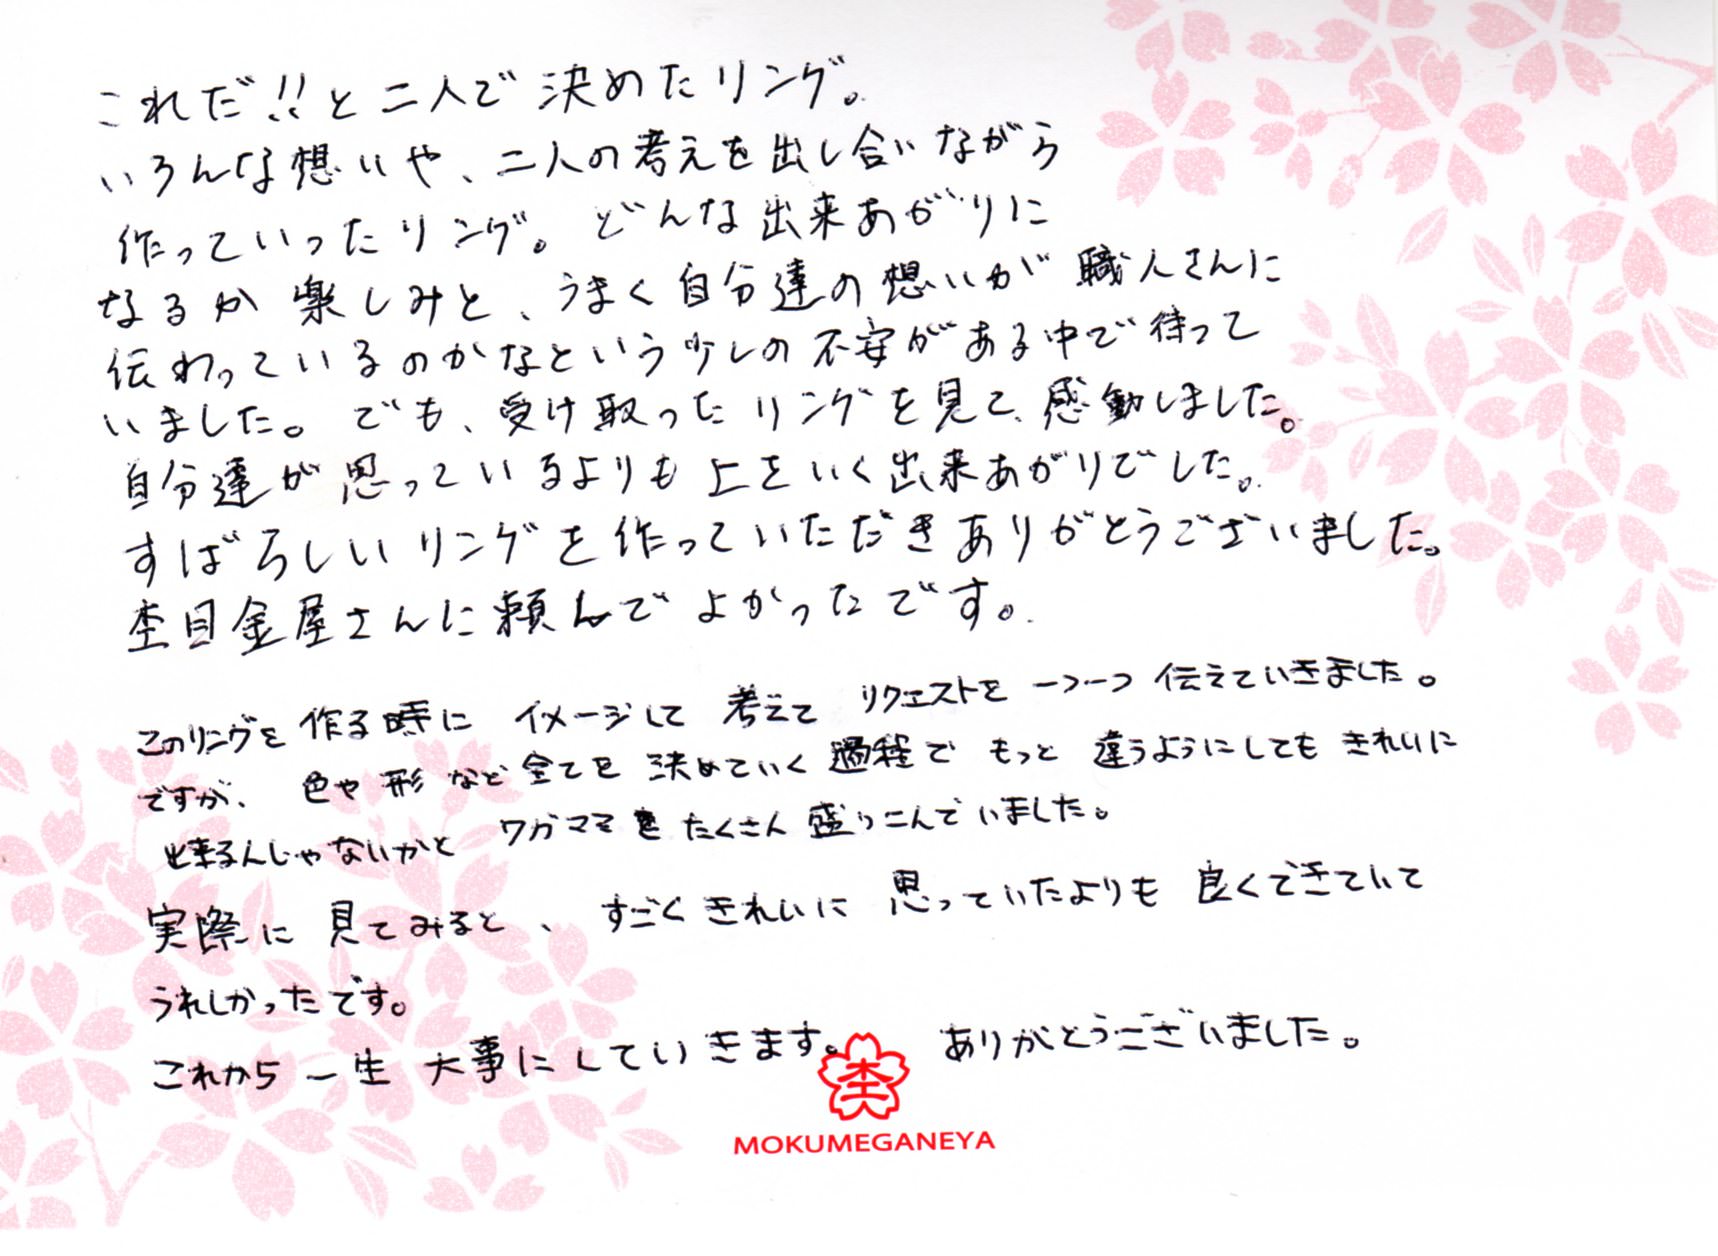 これだ!!と二人で決めたリング。
いろんな想いや、二人の考えを出し合いながら
作っていったリング。どんな出来あがりに
なるか楽しみと、うまく自分達の想いが職人さんに
伝わっているのかなという少しの不安がある中で待って
いました。でも、受け取ったリングを見て、感動しました。
自分達が思っているよりも上をいく出来あがりでした。
すばらしいリングを作っていただきありがとうございました。
杢目金屋さんに頼んでよかったです。
このリングを作る時にイメージして考えてリクエストを一つ一つ伝えていきました。
ですが、色や形など全てを決めていく過程でもっと違うようにしてもきれいに
出来るんじゃないかとワガママをたくさん盛りこんでいました。
実際に見てみると、すごくきれいに思っていたよりも良くできていて
うれしかったです。
これから一生大事にしていきます。ありがとうございました。
杢
MOKUMEGANEYA